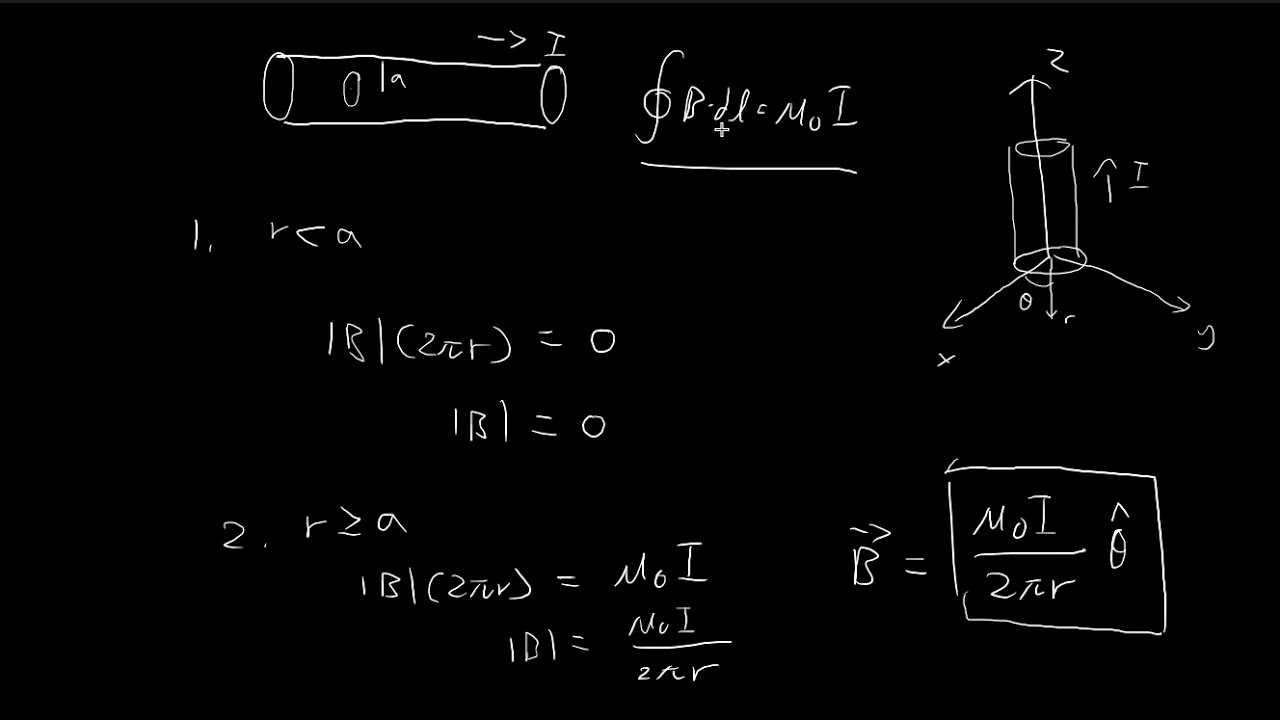 → I
a
∮ B·dl = μ₀I
z
↑ I
θ
r
x
y
1. r < a
|B|(2πr) = 0
|B| = 0
2. r ≥ a
|B|(2πr) = μ₀I
|B| = μ₀I / 2πr
B⃗ = μ₀I / 2πr θ̂